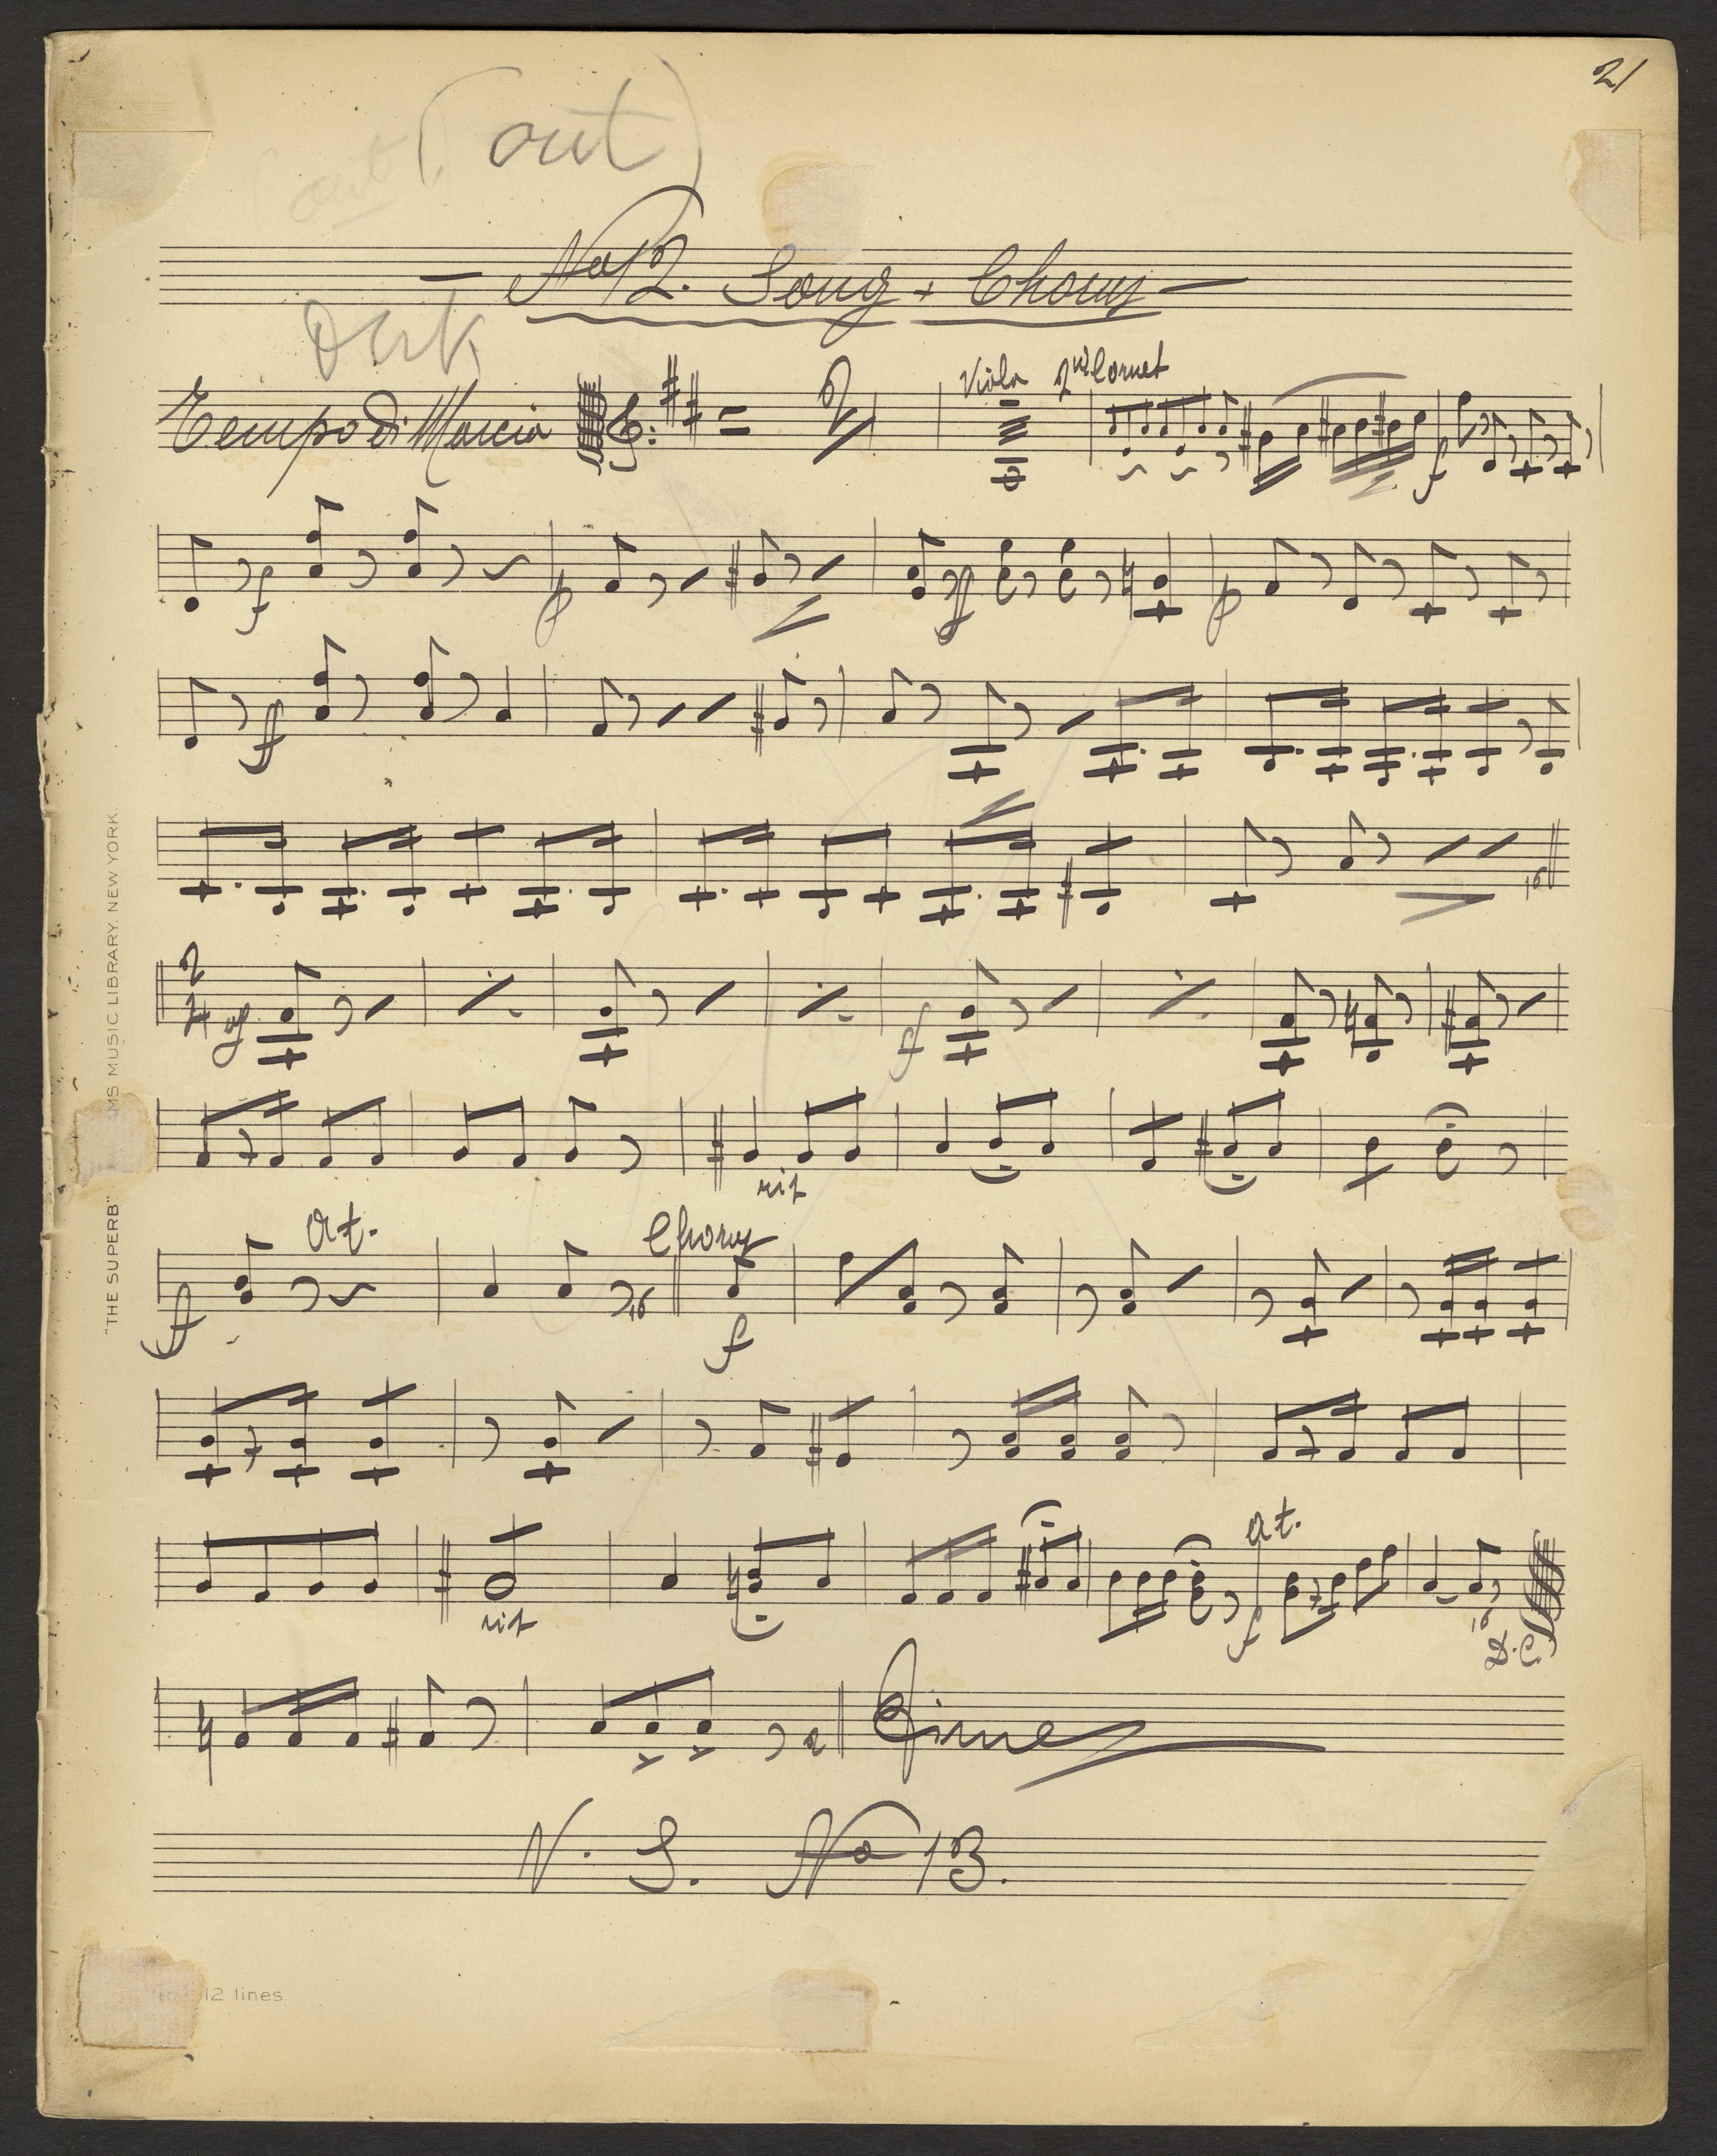 21
(out)
out
No 12. Song + Chorus
Dark
Viola 2nd Cornet
Tempo di Marcia
f
f p ff p
ff
16
2
4 f
rit
at. Chorus
ff 16 f
at.
rit f 16 D.C.
Fine
N. S. No 13.
"THE SUPERB" MS MUSIC LIBRARY, NEW YORK
12 lines